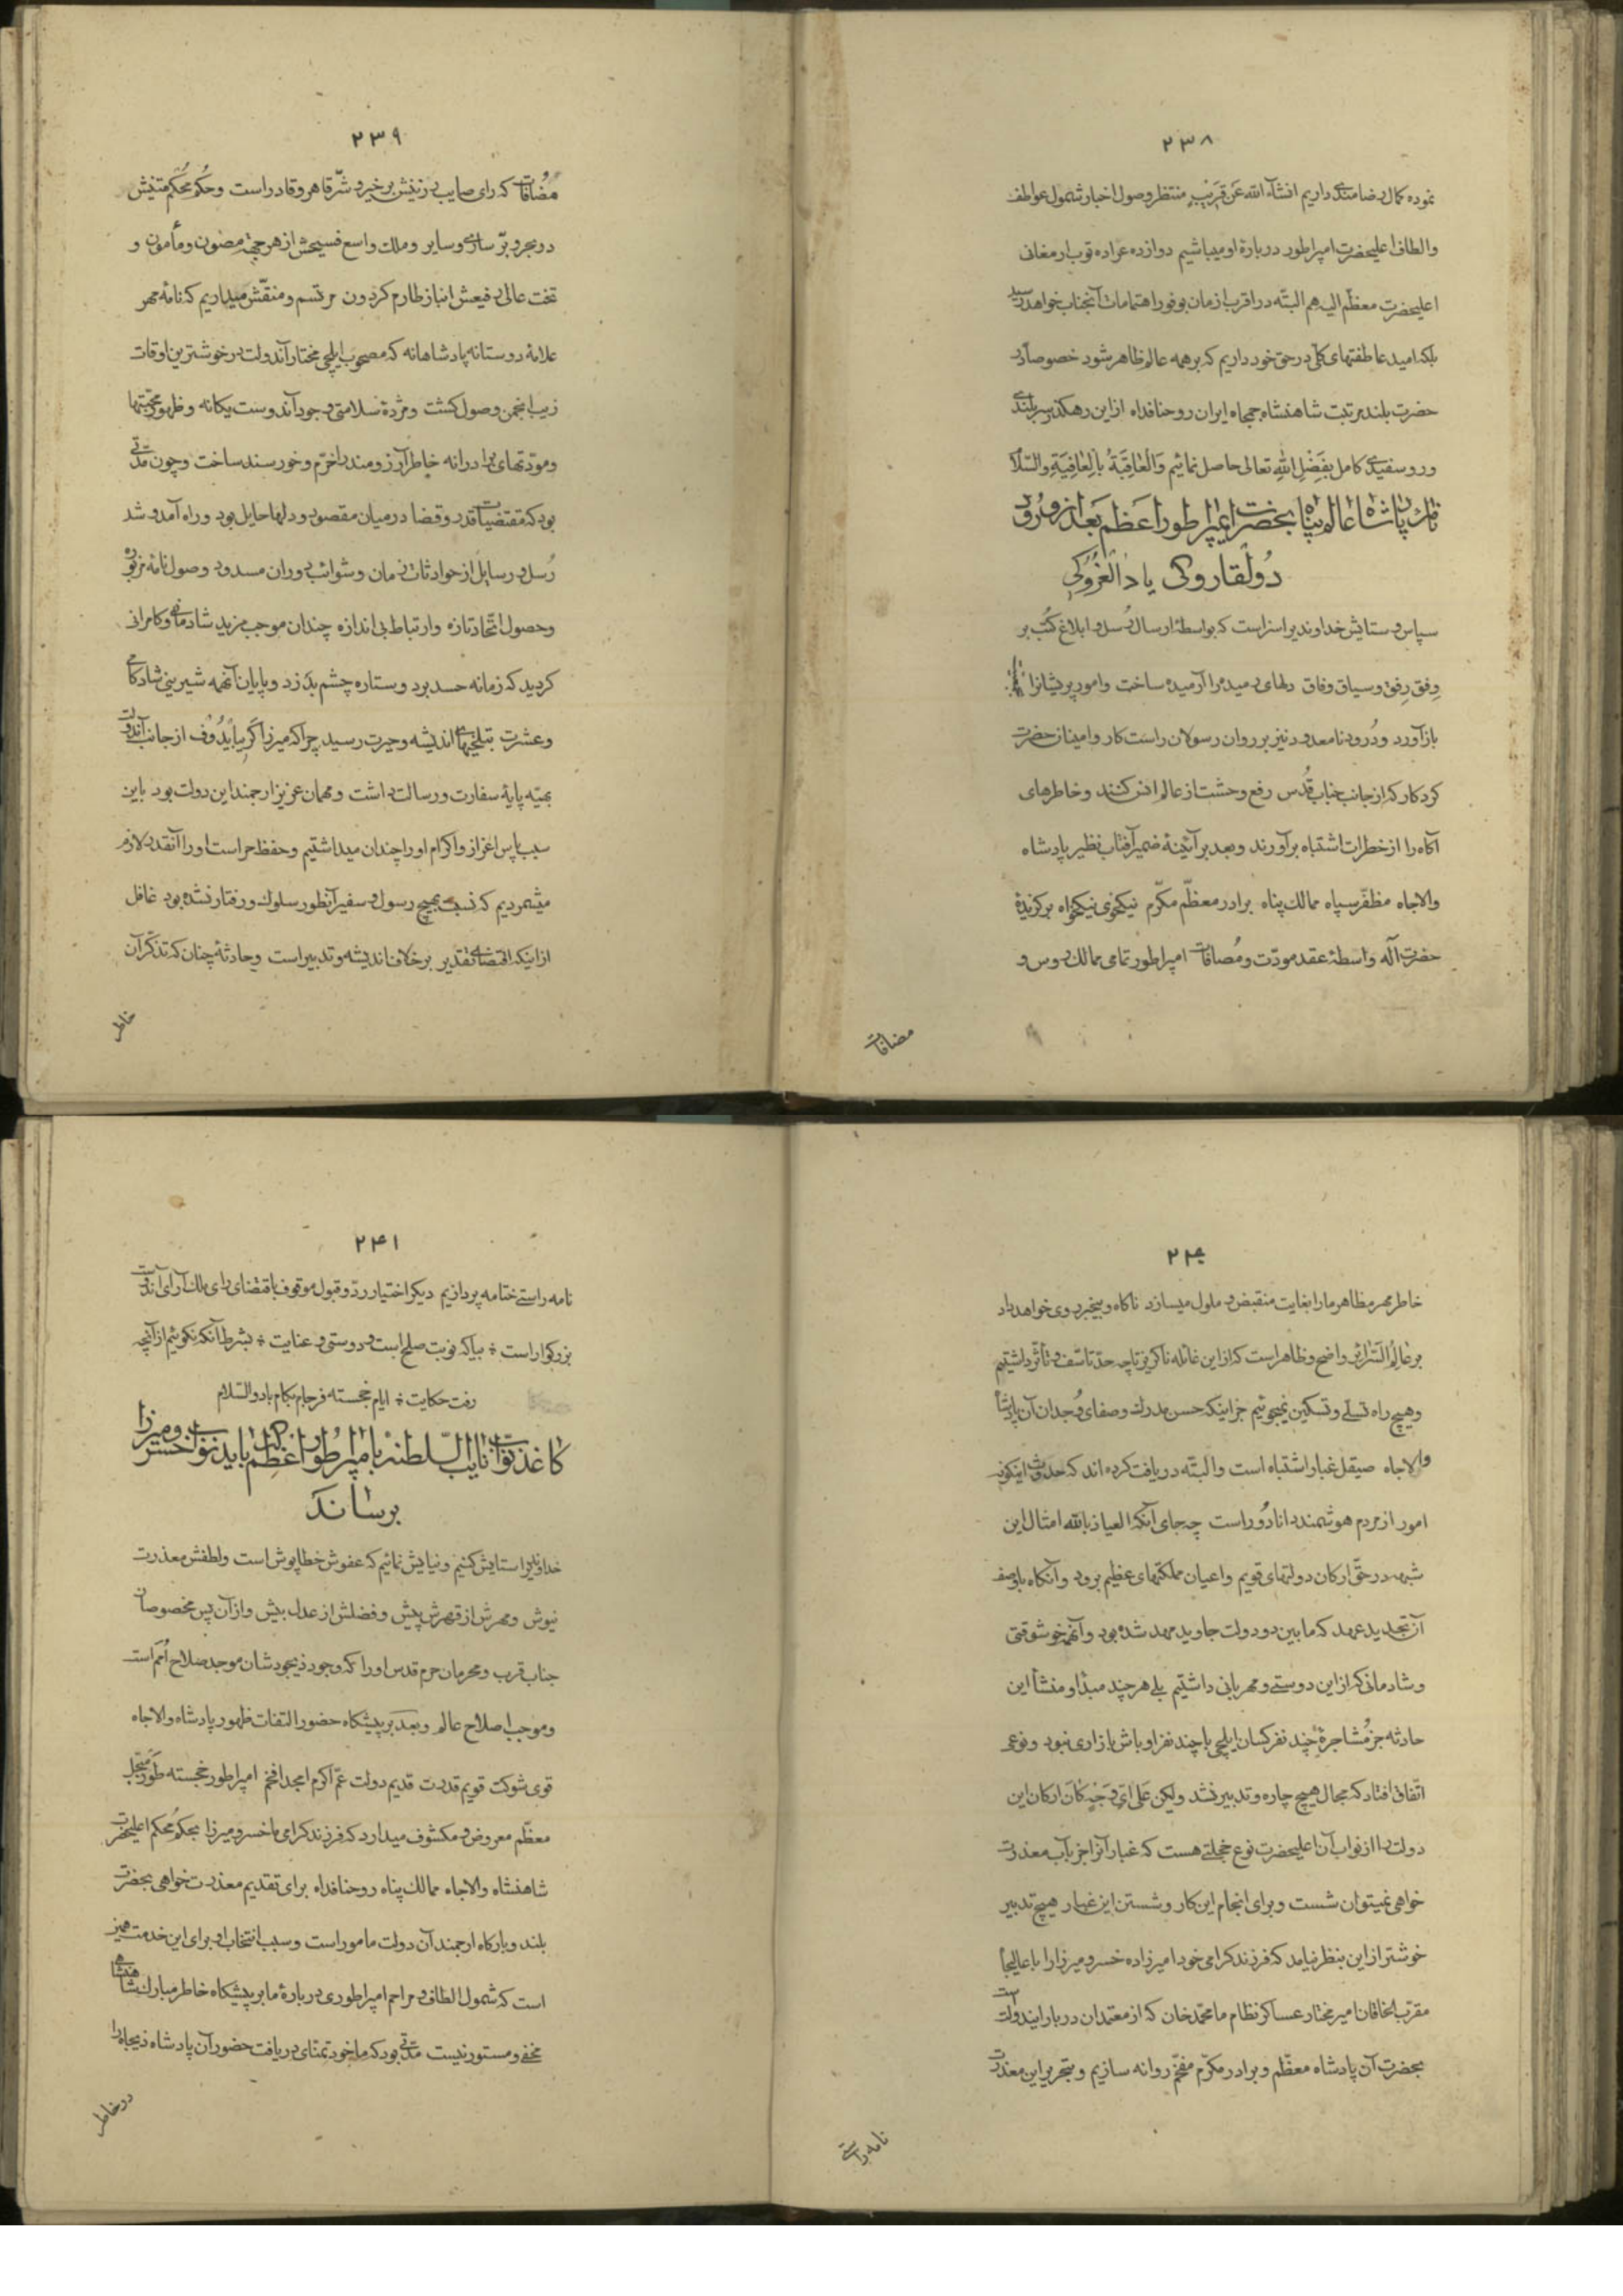 ۲۳۸
نموده کمال رضامندی داریم انشآء الله عَن قَرَیْبٍ منتظر وصول اخبار شمول عواطف
والطاف اعلیحضرت امپراطور دربارهٔ او میباشیم دوازده عراده توپ ارمغانی
اعلیحضرت معظّم الیه هم البتّه در اقرب ازمان بوفور اهتمامات آنجناب خواهد رسید
بلکه امید عاطفتهای کلّی در حق خود داریم که بر همه عالم ظاهر شود خصوصاً در
حضرت بلند مرتبت شاهنشاه جمجاه ایران روحنا فداه ازین رهگذر سربلندی
و رو سفیدی کامل بِفَضْلِ اللهِ تعالی حاصل نمائیم وَالْعٰاقِبَةُ بِالْعٰافِیَةِ والسّلام
نامه پادشاه عالم پناه بحضرت ایمپراطور اعظم بعد از ورود
دولقاروکی یا دالغروکی
سپاس و ستایش خداوندیرا سزاست که بواسطهٔ ارسال رُسل و ابلاغ کُتب بر
وِفق رِفق و سیاق وفاق دلهای رمیده را آرمیده ساخت و امور پریشانرا
باز آورد و دُرود نامعدود نیز بر روان رسولان راست کار و امینان حضرت
کردکار که از جانب جناب قُدس رفع وحشت از عالم انس کنند و خاطرهای
آگاه را از خطرات اشتباه برآورند و بعد بر آئینهٔ ضمیر آفتاب نظیر پادشاه
والاجاه مظفّر سپاه ممالک پناه برادر معظّم مکرّم نیکخوی نیکخواه برگزیدهٔ
حضرت آله واسطهٔ عقد مودّت و مُصافات امپراطور تمامی ممالک روس و
مضافات
۲۳۹
مُضافات که رای صایب رزینش بر خیر و شرّ قاهر و قادر است و حُکم مُحکم متینش
در بحر و برّ ساری و سایر و ملک واسع فسیحش از هر جهة مصون و مأمون و
تخت عالی رفیعش انباز طارم گردون مرتسم و منقّش میداریم که نامهٔ مهر
علامهٔ دوستانه پادشاهانه که مصحوب ایلچی مختار آندولت در خوشترین اوقات
زیب انجمن وصول گشت و مژدهٔ سلامتی وجود آندوست یکانه و ظهور محبّتها
و مودّتهای برادرانه خاطر آرزومند را خرّم و خورسند ساخت و چون مدّتی
بود که مقتضیات قدر و قضا در میان مقصود و دلها حایل بود و راه آمد و شد
رُسل و رسایل از حوادثات زمان و شوائب دوران مسدود وصول نامهٔ مزبوره
و حصول اتّحاد تازه و ارتباط بی اندازه چندان موجب مزید شادمانی و کامرانی
گردید که زمانه حسد برد و ستاره چشم بَد زد و پایان آنهمه شیرینی شادکامی
و عشرت بتلخیهای اندیشه و حیرت رسید چرا که میرزا گریبایدوف از جانب آندولت
بهیّه پایهٔ سفارت و رسالت داشت و مهمان عزیز ارجمند این دولت بود باین
سبب پاس اعزاز و اکرام او را چندان میداشتیم و حفظ حراست او را آنقدر لازم
میشمردیم که نسبت بهیچ رسول و سفیر آنطور سلوک و رفتار نشده بود غافل
از اینکه اقتضای تقدیر برخلاف اندیشه و تدبیر است و حادثهٔ چنان که تذکّر آن
خاطر
۲۴۰
خاطر مهر مظاهر ما را بغایت منقبض و ملول میسازد ناگاه و بیخبر روی خواهد داد
بر عٰالِمُ السَّرائِر واضح و ظاهر است که از این غائله ناگزیر تا چه حدّ تاسّف و تأثّر داشتیم
و هیچ راه تسلّی و تسکین نمیجوئیم جز اینکه حسن مدرک و صفای وُجدان آن پادشاه
والاجاه صیقل غبار اشتباه است و البتّه دریافت کرده اند که حدوث اینگونه
امور از مردم هوشمند دانا دُور است چه جای آنکه العیاذ بالله امثال این
شبهه در حقّ ارکان دولتهای قویم و اعیان مملکتهای عظیم برود و آنگاه با وصف
آن تجدید عهد که ما بین دو دولت جاوید مهد شده بود و آنهمه خوشوقتی
و شادمانی که از این دوستی و مهربانی داشتیم بلی هر چند مبدأ و منشأ این
حادثه جز مُشاجرهٔ چند نفر کسان ایلچی با چند نفر اوباش بازاری نبود و نوعی
اتّفاق افتاد که مجال هیچ چاره و تدبیر نشد ولیکن عَلی اَیِّ وَجْهٍ کٰانَ ارکان این
دولت را از نواب آن اعلیحضرت نوع خجلتی هست که غبار آنرا جز بآب معذرت
خواهی نمیتوان شست و برای انجام این کار و شستن این غبار هیچ تدبیر
خوشتر از این بنظر نیامد که فرزند گرامی خود امیرزاده خسرو میرزا را با عالیجاه
مقرّب الخاقان امیر مختار عساکر نظام ما محمّد خان که از معتمدان دربار ایندولت است
بحضرت آن پادشاه معظّم و برادر مکرّم مفخّم روانه سازیم و بتحریر این معذرت
نامه راستی
۲۴۱
نامه راستی ختامه پردازیم دیگر اختیار ردّ و قبول موقوف باقتضای رای ملک آرای آندولت
بزرگوار است * بیا که نوبت صلح است و دوستی و عنایت * بشرط آنکه نگوئیم از آنچه
رفت حکایت * ایام خجسته فرجام بکام باد والسّلام
کاغذ نواب نایب السّلطنه بامپراطور اعظم که باید نواب خسرو میرزا
برساند
خداوندیرا ستایش کنیم و نیایش نمائیم که عفوش خطاپوش است و لطفش معذرت
نیوش و مهرش از قهرش پیش و فضلش از عدل بیش و از آن پس مخصوصان
جناب قرب و محرمان حرم قدس او را که وجود ذیجودشان موجد صلاح اُمَم است
و موجب اصلاح عالم و بعد بر پیشگاه حضور التفات ظهور پادشاه والاجاه
قوی شوکت قویم قدرت قدیم دولت عمّ اکرم امجد افخم امپراطور خجسته طَور مبجّل
معظّم معروض و مکشوف میدارد که فرزند گرامی ما خسرو میرزا بحکم مُحکم اعلیحضرت
شاهنشاه والاجاه ممالک پناه روحنا فداه برای تقدیم معذرت خواهی بحضرت
بلند و بارگاه ارجمند آن دولت مامور است و سبب انتخاب او برای این خدمت همین
است که شمول الطاف و مراحم امپراطوری دربارهٔ ما بر پیشگاه خاطر مبارک شاهنشاهی
مخفی و مستور نیست مدّتی بود که ما خود تمنّای دریافت حضور آن پادشاه ذیجاه را
در خاطر